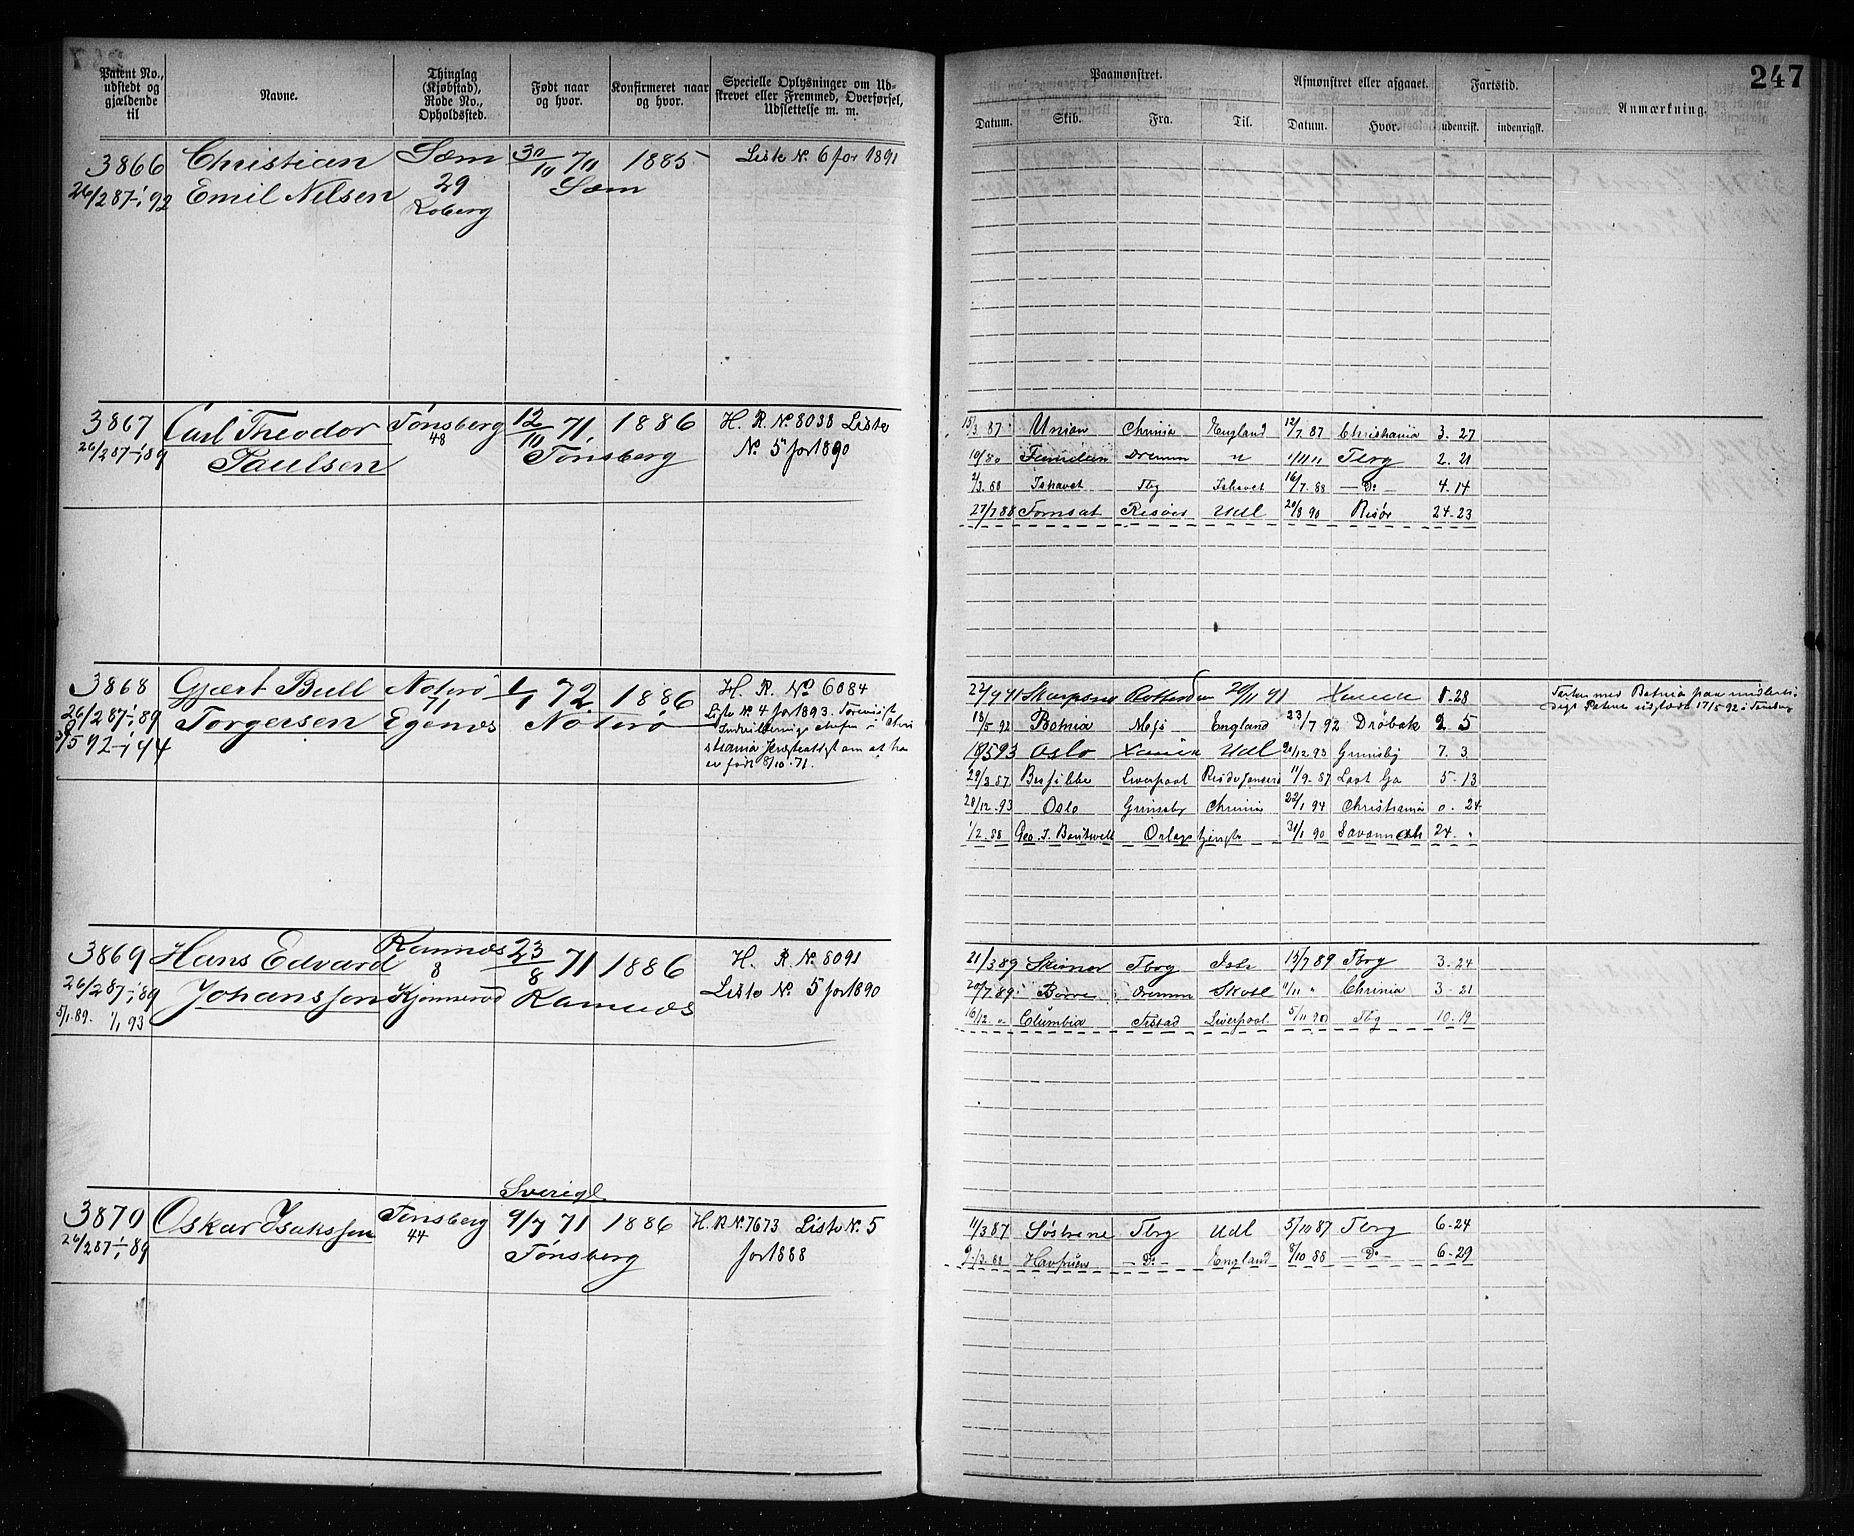 247
Patent No., udstedt og gjældende til
Navne.
Thinglag (Kjøbstad), Rode No., Opholdssted.
Født naar og hvor.
Konfirmeret naar og hvor.
Specielle Oplysninger om Udskrevet eller Fremmed, Overførsel, Udslettelse m. m.
Paamønstret.
Afmønstret eller afgaaet.
Fartstid.
Anmærkning.
Datum. Skib. Fra. Til. Datum. Hvor. udenrigst. indenrigst.
3866 Christian Sæm 30/10 70 1885 Liste No. 6 for 1891
26/2 87-1/1 92 Emil Nilsen 29 Sæm
Roberg
3867 Carl Theodor Tønsberg 12/10 71. 1886 H. R. No. 8038 Liste
26/2 87-1/1 89 Paulsen 48 Tønsberg No. 5 for 1890
15/3 87 Union Chrinia England 12/7 87 Christiania 3.27
Familien Dramm Tbrg 2.21
2/3.88 Ishavet Tbg Ishavet 16/7.88 —Do— 4.14
27/7 88 Risøer Udl 20/8 90 Risør 24.23
3868 Gjært Bull Nøterø 1/1 72. 1886 H. R. No 6084
26/2 87-1/1 89 Torgersen 71 Egenes Nøterø Liste No. 4 for 1893.
er født 8/10.71.
22/9 91 20/11 91 1.28
13/5 92 Botnia Moss England 23/7 92 Drøbak 2. 5
18/5 93 Oslo Udl 20/12.93 Grimsby 7. 3
29/3.87 Liverpool 11/9.87 5.13
20/12.93 Oslo Grimsby Chrinia 22/1 94 Christiania 0.24
1/2.88 31/1 90 Savannah 24.
3869 Hans Edvard Ramnæs 23/8 71 1886 H. R. No. 8091
26/2 87-1/1 89 Johanssen 8 Ramnæs Liste No. 5 for 1890
5/1.89. 1/1 93
21/3 89 Skirner Tbrg Ish 15/7 89 Tbrg 3.24
20/7.89 Børre Dramm Skotl Chrinia 3.21
16/12 Columbia Liverpool 5/11 90 Tbg 10.19
Sverige
3870 Oskar Isakssen Tønsberg 9/7 71 1886 H. R No. 7673 Liste No. 5
26/2 87-1/1 89 44 Tønsberg for 1888
11/3 87 Søstrene Tbrg Udl 5/10 87 Tbrg 6.24
9/3.88 Havfruen —Do— England 8/10 88 —Do— 6.29